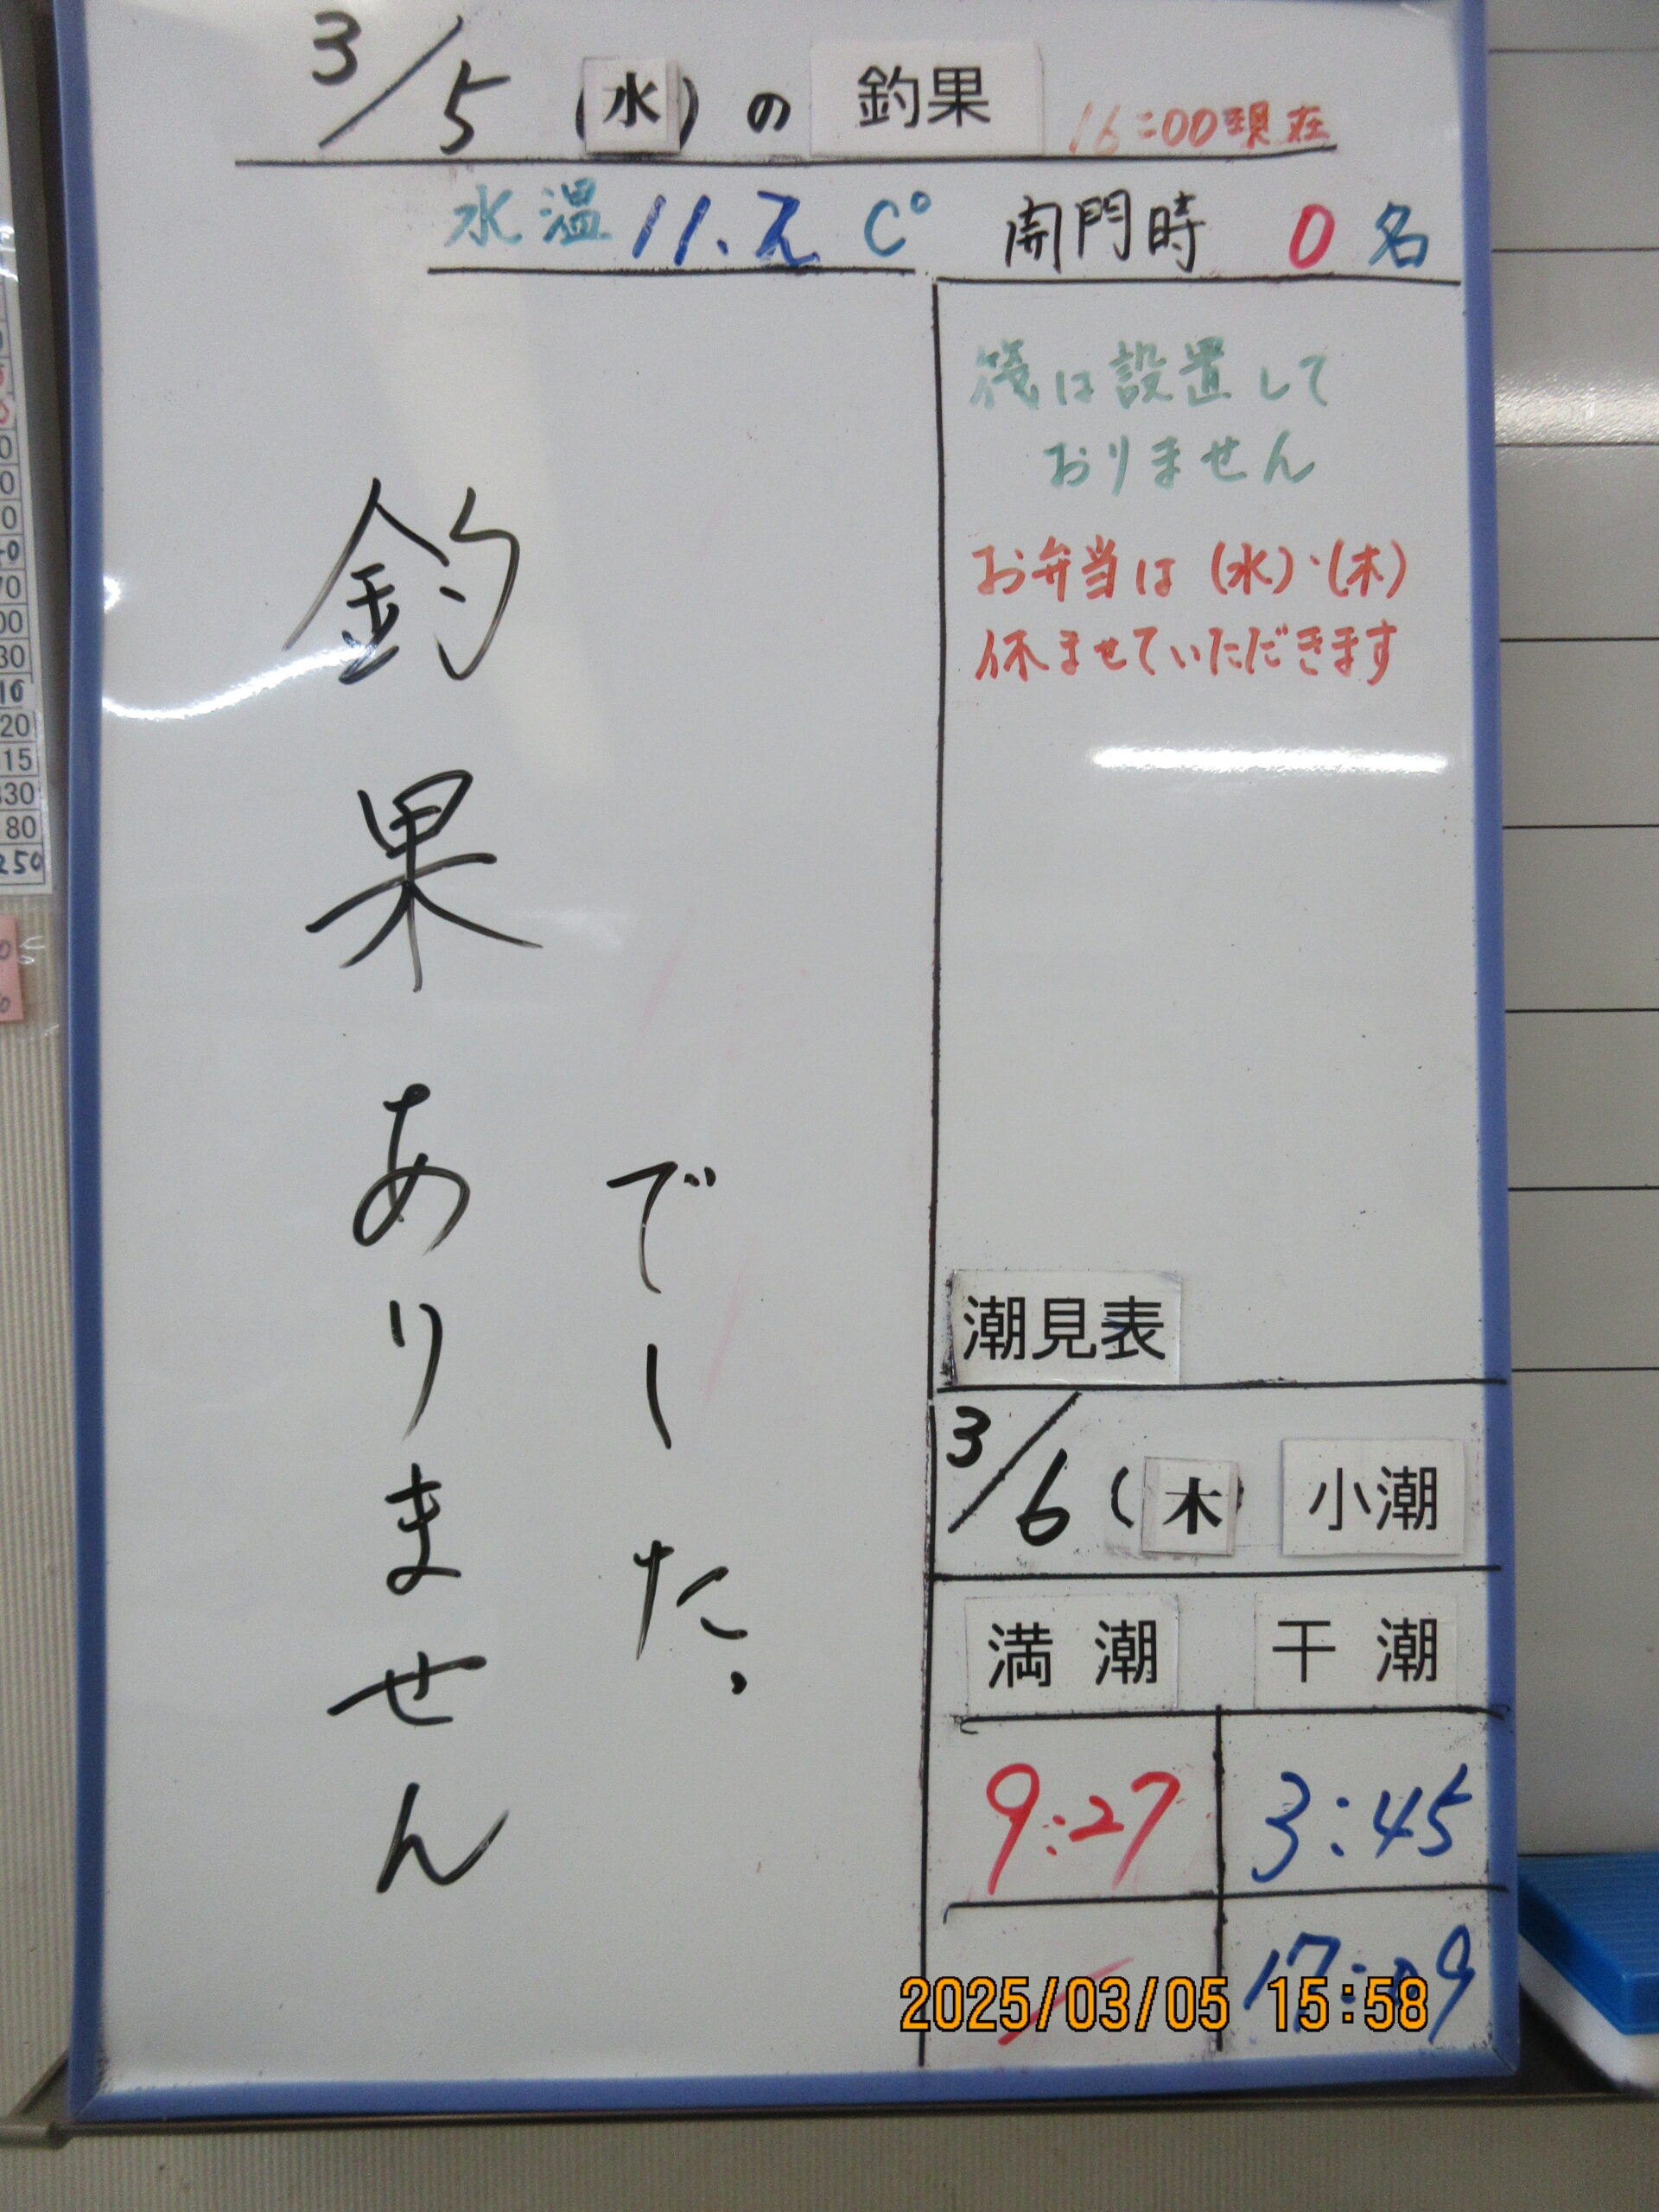 3/5 (水) の 釣果 16:00現在
水温 11.2 C° 開門時 0 名
筏は設置して
おりません
お弁当は(水)・(木)
休ませていただきます
釣果ありません
でした。
潮見表
3/6 (木) 小潮
満潮 干潮
9:27 3:45
17:09
2025/03/05 15:58